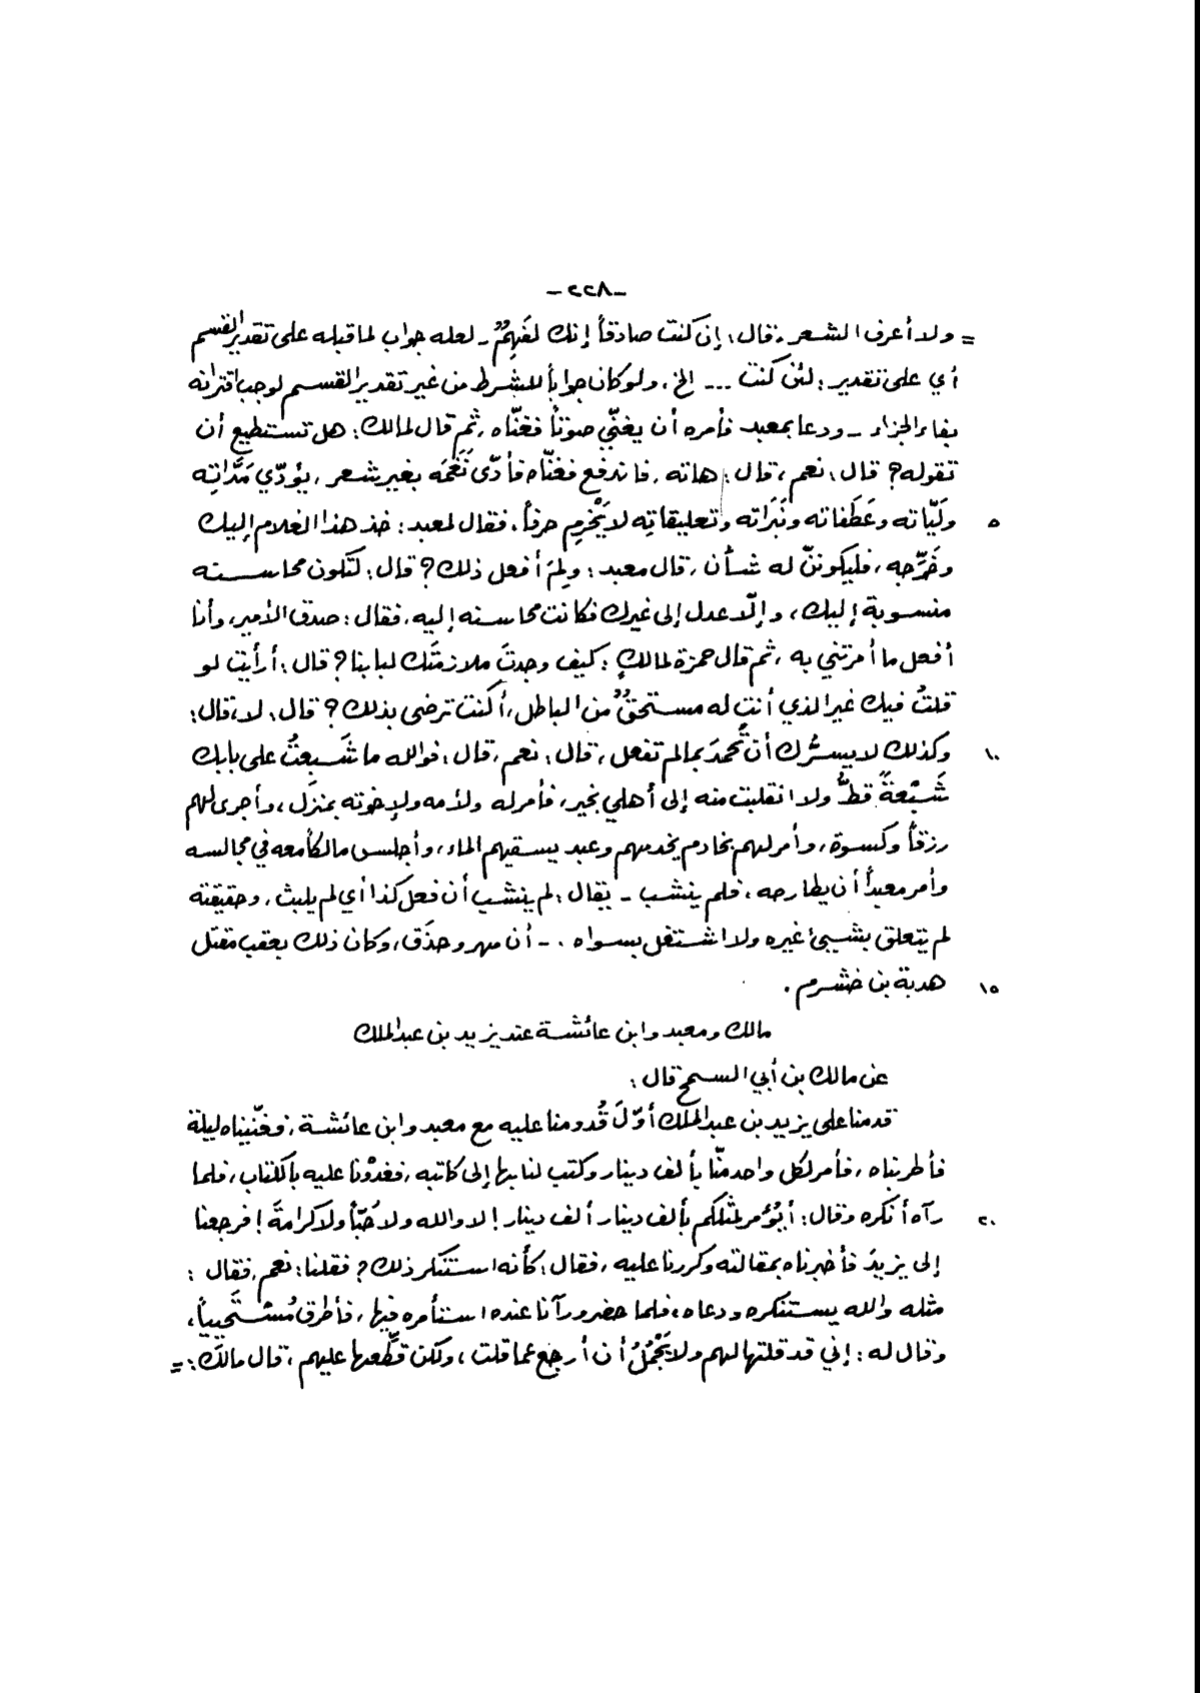 -٢٢٨-
= ولا أعرف الشعر، قال: إن كنت صادقاً إنك لفَهِمٌ - لعله جواب لما قبله على تقدير القسم
أي على تقدير: لئن كنت --- الخ، ولو كان جواباً للشرط من غير تقدير القسم لوجب اقترانه
بفاء الجزاء - ودعا بمعبد فأمره أن يغنّي صوتاً فغنّاه، ثم قال لمالك: هل تستطيع أن
تقوله؟ قال: نعم، قال: هاته، فاندفع فغنّاه فأدّى نَغَمَه بغير شعر، يؤدّي مَدَّاتِه
٥ ولَيّاته وعَطَفاته ونَبَراته وتعليقاتِه لا يَخْرِم حرفاً، فقال لمعبد: خذ هذا الغلام إليك
وخَرِّجه، فليكوننّ له شأن، قال معبد: ولِمَ أفعل ذلك؟ قال: لتكون محاسنه
منسوبة إليك، وإلّا عدل إلى غيرك فكانت محاسنه إليه، فقال: صدق الأمير، وأنا
أفعل ما أمرتني به، ثم قال حمزة لمالكٍ: كيف وجدتَ ملازمتَك لبابنا؟ قال: أرأيت لو
قلتُ فيك غير الذي أنت له مستحقٌّ من الباطل، أكنت ترضى بذلك؟ قال: لا، قال:
١٠ وكذلك لا يسُّرك أن تُحمدَ بما لم تفعل، قال: نعم، قال: فوالله ما شَبِعتُ على بابك
شَبْعةً قطُّ ولا انقلبت منه إلى أهلي بخير، فأمر له ولأمه ولإخوته بمنزل، وأجرى لهم
رزقاً وكسوة، وأمر لهم بخادم يخدمهم وعبد يسقيهم الماء، وأجلس مالكاً معه في مجالسه
وأمر معبداً أن يطارحه، فلم ينشب - يقال: لم ينشب أن فعل كذا أي لم يلبث، وحقيقته
لم يتعلق بشيئ غيره ولا اشتغل بسواه . - أن مهر وحذَق، وكان ذلك بعقب مقتل
١٥ هدبة بن خشرم .
مالك ومعبد وابن عائشة عند يزيد بن عبد الملك
عن مالك بن أبي السمح قال:
قدمنا على يزيد بن عبد الملك أوّلَ قُدومنا عليه مع معبد وابن عائشة، فغنّيناه ليلة
فأطربناه، فأمر لكل واحد منّا بألف دينار وكتب لنا بها إلى كاتبه، فغدَوْنا عليه بالكتاب، فلما
٢٠ رآه أنكره وقال: أيُؤمر لمثلكم بألف دينار ألف دينار! لا والله ولا حُبّاً ولا كرامةً! فرجعنا
إلى يزيدَ فأخبرناه بمقالته وكررنا عليه، فقال: كأنه استنكر ذلك؟ فقلنا: نعم، فقال:
مثله والله يستنكره ودعاه، فلما حضر ورآنا عنده استأمره فيها، فأطرق مُسْتَحيياً،
وقال له: إني قد قلتها لهم ولا يَجْمُلُ أن أرجع عما قلت، ولكن قَطِّعها عليهم، قال مالك: =